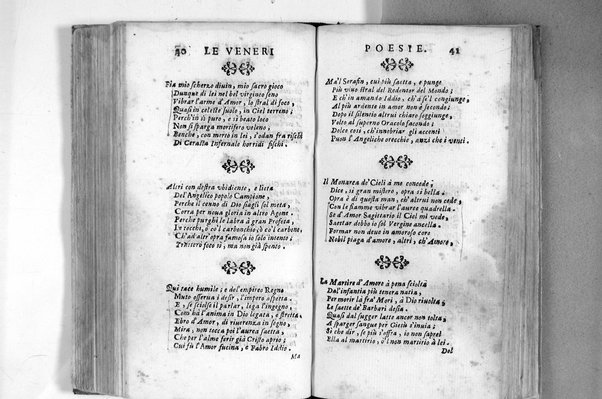 40 LE VENERI
Fia mio scherzo diuin, mio sacro gioco
Dunque di lei nel bel virgineo seno
Vibrar l'arme d'Amor, lo stral di foco,
Quasi in celeste suolo, in Ciel terreno;
Perch'in sì puro, e sì beato loco
Non si sparga mortifero veleno,
Benche, con morto in lei, s'odan fra rischi
Di Cerasta Infernale horridi fischi.
Altri con destra vbidiente, e lieta
Del'Angelico popolo Campione,
Perche il cenno di Dio siegli sol meta,
Corra per noua gloria in altro Agone.
Perche purghi le labra à gran Profeta,
Ch'ad altr'opra fumosa io solo intento;
Primiero foco sì, ma non già spento.
Qui tace humile; e del'empireo Regno
Muto osserua i desir, l'impero aspetta.
E, se sciolto il parlar, lega l'ingegno,
Com'hà l'anima in Dio legata, e stretta.
Ebro d'Amor, di riuerenza in segno,
Mira, non tocca poi l'aurea saetta,
Che per l'alme ferir già Cristo aprio;
Cui fù l'Amor fucina, e Fabro Iddio.
Ma
POESIE. 41
Ma'l Serafin, cui più saetta, e punge
Più viuo stral del Redentor del Mondo;
E ch'in amando Iddio, ch'à sè'l congiunge,
Al più ardente in amor non è secondo;
Dopo il silentio altrui chiaro soggiunge,
Volto al superno Oracolo facondo;
Dolce così, ch'innebriar gli accenti
Puon l'Angeliche orecchie, anzi che i venti.
Il Monarca de' Cieli à me concede,
Dice, sì gran mistero, opra sì bella.
Opra è di questa man, ch'altrui non cede,
Con le fiamme vibrar l'auree quadrella.
Se d'Amor Sagittario il Ciel mi vede,
Saettar debbo io sol Vergine ancella.
Formar non deue in amoroso core
Nobil piaga d'amore, altri, ch'Amore.
La Martire d'Amore à pena sciolta
Dal'infantia più tenera natia,
Per morir là fra' Mori, à Dio riuolta;
Le saette de' Barbari desia.
Quasi dal sugger latte ancor non tolta,
A sparger sangue per Giesù s'inuia;
Sì che dir, se più s'offra, io non saprei
Ella al martirio, ò'l non martirio à lei.
Del